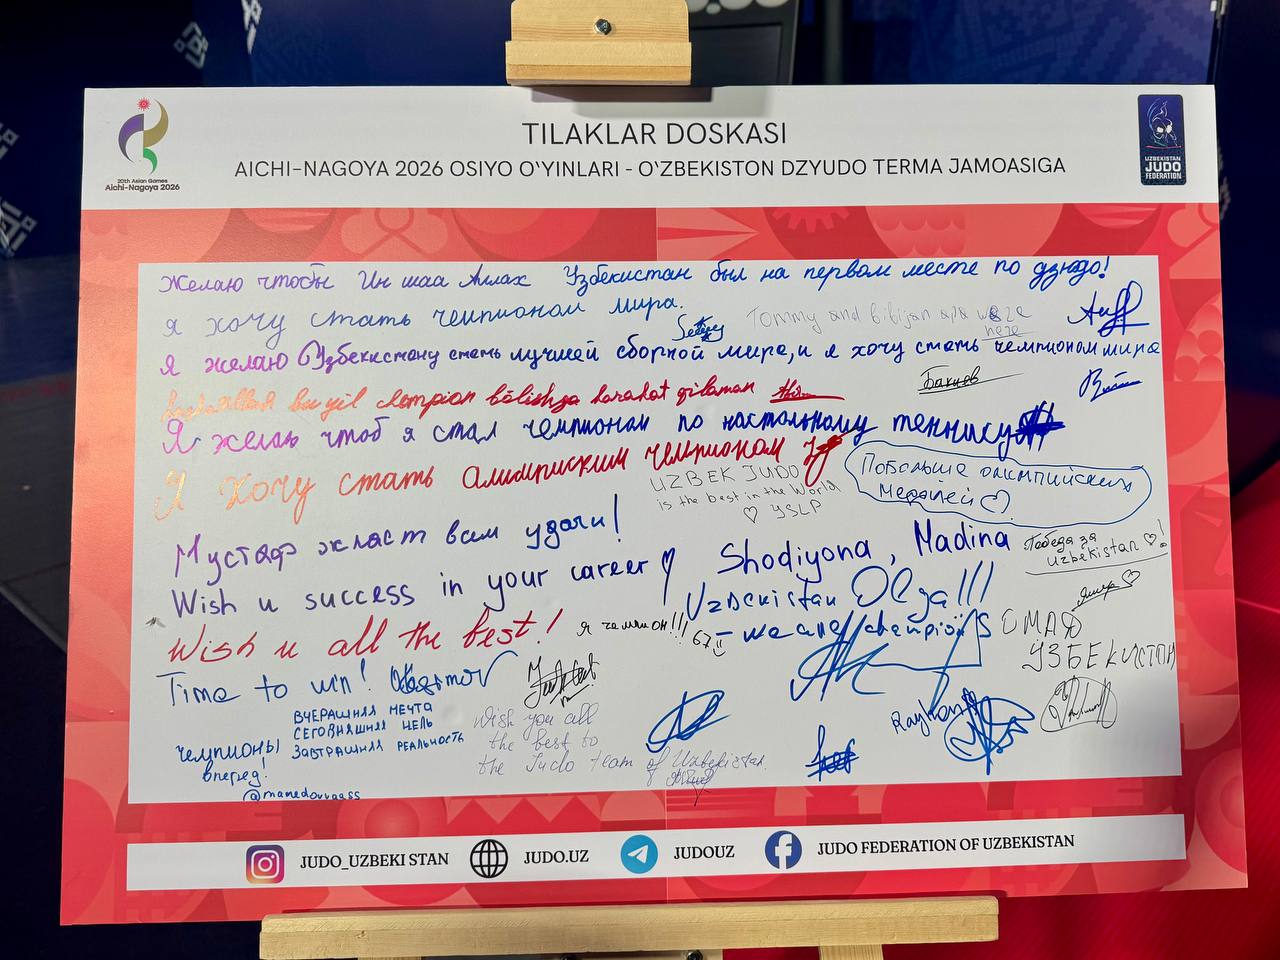 20th Asian Games
Aichi-Nagoya 2026
TILAKLAR DOSKASI
AICHI-NAGOYA 2026 OSIYO O‘YINLARI - O‘ZBEKISTON DZYUDO TERMA JAMOASIGA
UZBEKISTAN
JUDO
FEDERATION
Желаю чтобы Ин шаа Аллах Узбекистан был на первом месте по дзюдо!
я хочу стать чемпионом мира.
Tommy and bibijan apa were
here
Я желаю Узбекистану стать лучшей сборной мира, и я хочу стать чемпионом мира
bu yil chempion bölishga harakat qilaman
Бакиев
Я желаю чтоб я стал чемпионом по настольному теннису
Я хочу стать алимписким чемпионом
UZBEK JUDO
is the best in the World
♡ YSLP
Побольше олимпийских
медалей ♡
Мустаф жласт вам удачи!
Shodiyona, Madina
Победа за
Uzbekistan ♡!
Wish u success in your career
Uzbekistan Olga!!!
Wish u all the best!
я чемпион!!!
67
- we are champions
УЗБЕКИСТАН
Time to win!
ВЧЕРАШНЯЯ МЕЧТА
СЕГОДНЯШНЯЯ ЦЕЛЬ
ЗАВТРАШНЯЯ РЕАЛЬНОСТЬ
чемпионы
вперед!
@mamedovvaass
Wish you all
the best to
the Judo team of Uzbekistan.
Rayhan
JUDO_UZBEKI STAN
JUDO.UZ
JUDOUZ
JUDO FEDERATION OF UZBEKISTAN